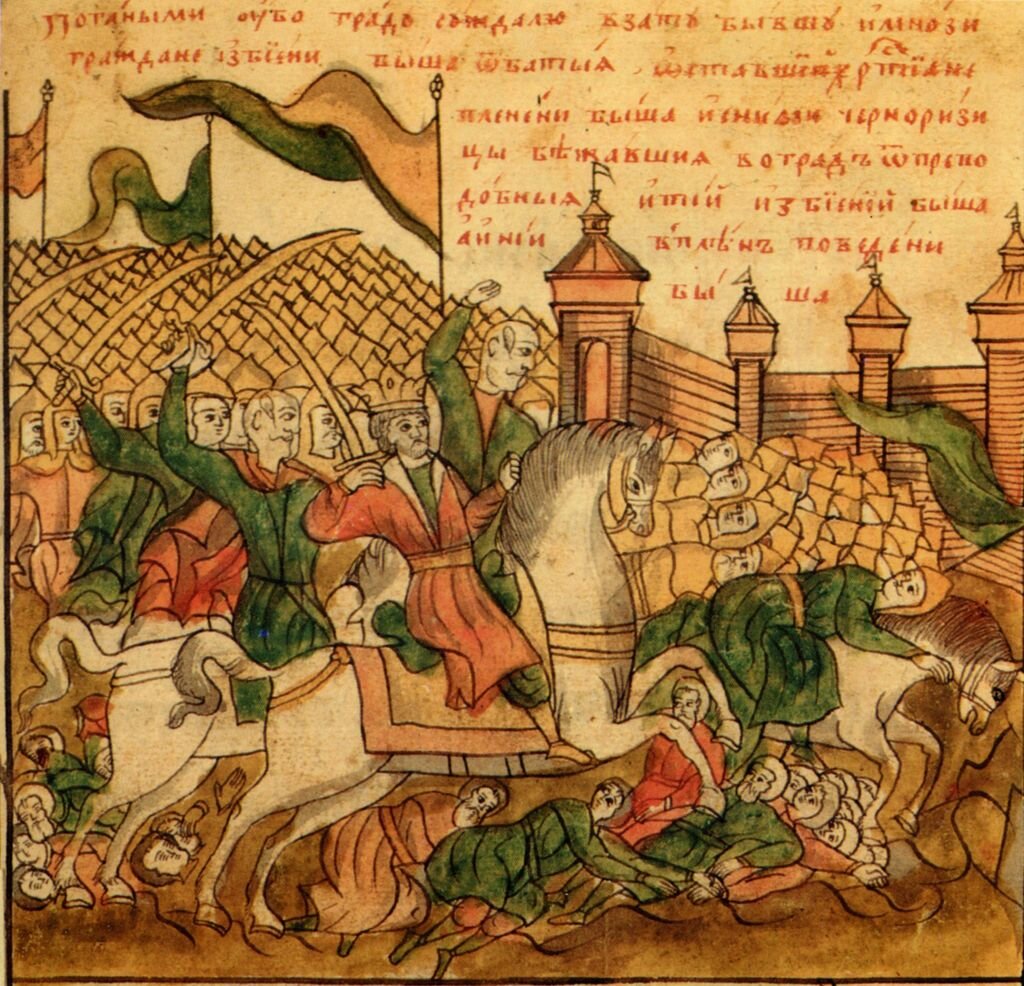 Погаными оубо градꙋ сꙋждалю взатꙋ бывшꙋ имнози
граждане избїени быша ѿбатыя ѿставшїиже хртїане
пленени быша иении черноризи
цы бѣжавшия вотградъ ѿпрепо
добныя итїй избїений быша
аинїи вплѣнъ поведени
бы ша